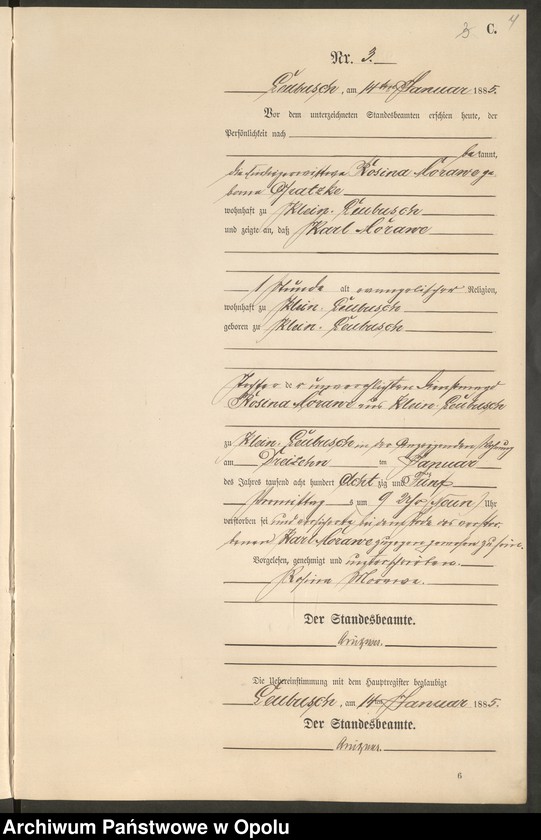 4
C.
Nr. 3.
Leubusch, am 14ten Januar 1885.
Vor dem unterzeichneten Standesbeamten erschien heute, der
Persönlichkeit nach
be kannt,
die Rosina Morawe ge
borne
wohnhaft zu Klein Leubusch
und zeigte an, daß Karl Morawe
1 Stunde alt evangelischer Religion,
wohnhaft zu Klein Leubusch
geboren zu Klein Leubusch
der unverehelichten Dienstmagd
Rosina Morawe aus Klein Leubusch
zu Klein Leubusch in der Anzeigenden Wohnung
am Dreizehn ten Januar
des Jahres tausend acht hundert Acht zig und Fünf
Vormittag s um 9 Uhr
verstorben sei und bei dem Tode des verstor
benen Karl Morawe zugegen gewesen zu sein.
Vorgelesen, genehmigt und unterschrieben.
Rosina Morawe.
Der Standesbeamte.
Die Uebereinstimmung mit dem Hauptregister beglaubigt
Leubusch, am 14ten Januar 1885.
Der Standesbeamte.
6
Archiwum Państwowe w Opolu